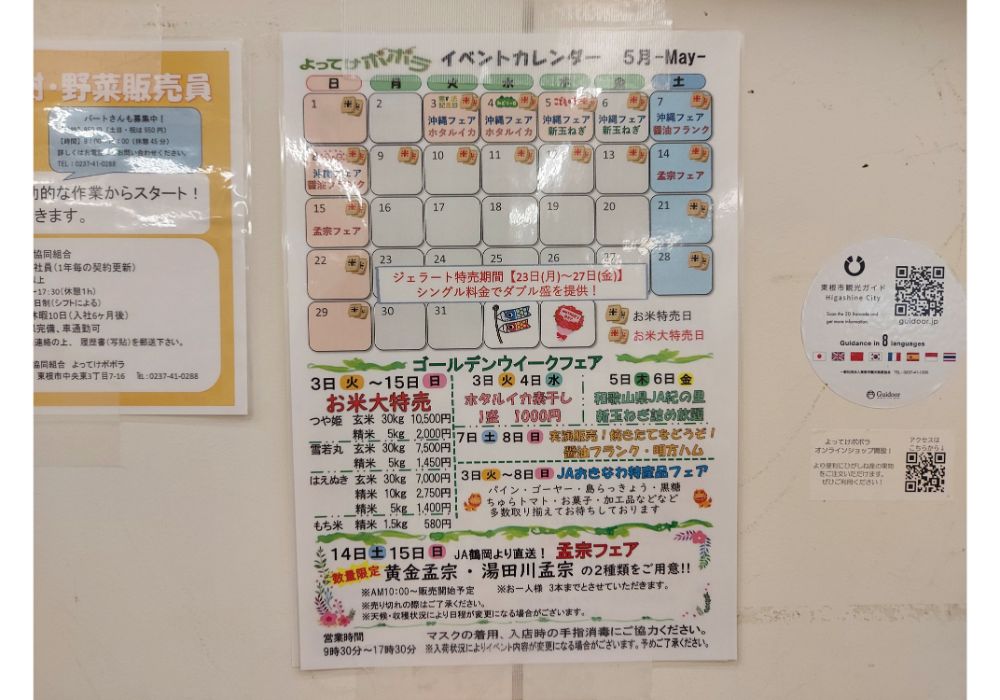 よってけポポラ イベントカレンダー 5月-May-
日 月 火 水 木 金 土
1 2 3 4 5 6 7
沖縄フェア 沖縄フェア 沖縄フェア 沖縄フェア 沖縄フェア
ホタルイカ ホタルイカ 新玉ねぎ 新玉ねぎ 醤油フランク
9 10 11 12 13 14
沖縄フェア 孟宗フェア
醤油フランク
15 16 17 18 19 20 21
孟宗フェア
22 23 24 25 27 28
ジェラート特売期間【23日(月)～27日(金)】
シングル料金でダブル盛を提供！
29 30 31
お米特売日
お米特売日
ゴールデンウイークフェア
3日 火 ～15日 日
お米大特売
つや姫 玄米 30kg 10,500円
精米 5kg 2,000円
雪若丸 玄米 30kg 7,500円
精米 5kg 1,450円
はえぬき 玄米 30kg 7,000円
精米 10kg 2,750円
精米 5kg 1,400円
もち米 精米 1.5kg 580円
3日 火 4日 水
ホタルイカ素干し
1盛 1000円
5日 木 6日 金
和歌山県JA紀の里
新玉ねぎ詰め放題
7日 土 8日 日 実演販売！焼きたてをどうぞ！
醤油フランク・明方ハム
3日 火 ～8日 日 JAおきなわ特産品フェア
パイン・ゴーヤー・島らっきょう・黒糖
ちゅらトマト・お菓子・加工品などなど
多数取り揃えてお待ちしております
14日 土 15日 日 JA鶴岡より直送！ 孟宗フェア
数量限定 黄金孟宗・湯田川孟宗 の2種類をご用意!!
※AM10:00～販売開始予定 ※お一人様 3本までとさせていただきます。
※売り切れの際はご了承ください。
※天候・収穫状況により日程が変更になる場合がございます。
営業時間 マスクの着用、入店時の手指消毒にご協力ください。
9時30分～17時30分 ※入荷状況によりイベント内容が変更になる場合がございます。予めご了承ください。
・野菜販売員
パートさんも募集中！
(土日・祝は950円)
(休憩45分)
お問い合わせください。
TEL：0237-41-0288
的な作業からスタート！
きます。
協同組合
社員(1年毎の契約更新)
以上
～17:30(休憩1h)
日制(シフトによる)
休暇10日(入社6ヶ月後)
完備、車通勤可
連絡の上、履歴書(写貼)を郵送下さい。
協同組合 よってけポポラ
東根市中央東3丁目7-16 TEL:0237-41-0288
東根市観光ガイド
Higashine City
Scan the 2D Barcode and
get more information.
guidoor.jp
Guidance in 8 languages
Guidoor
よってけポポラ
オンラインショップ開設！
より便利にひがしね産の果物
をご注文いただけます。
ぜひご利用ください！
アクセスは
こちらから↓